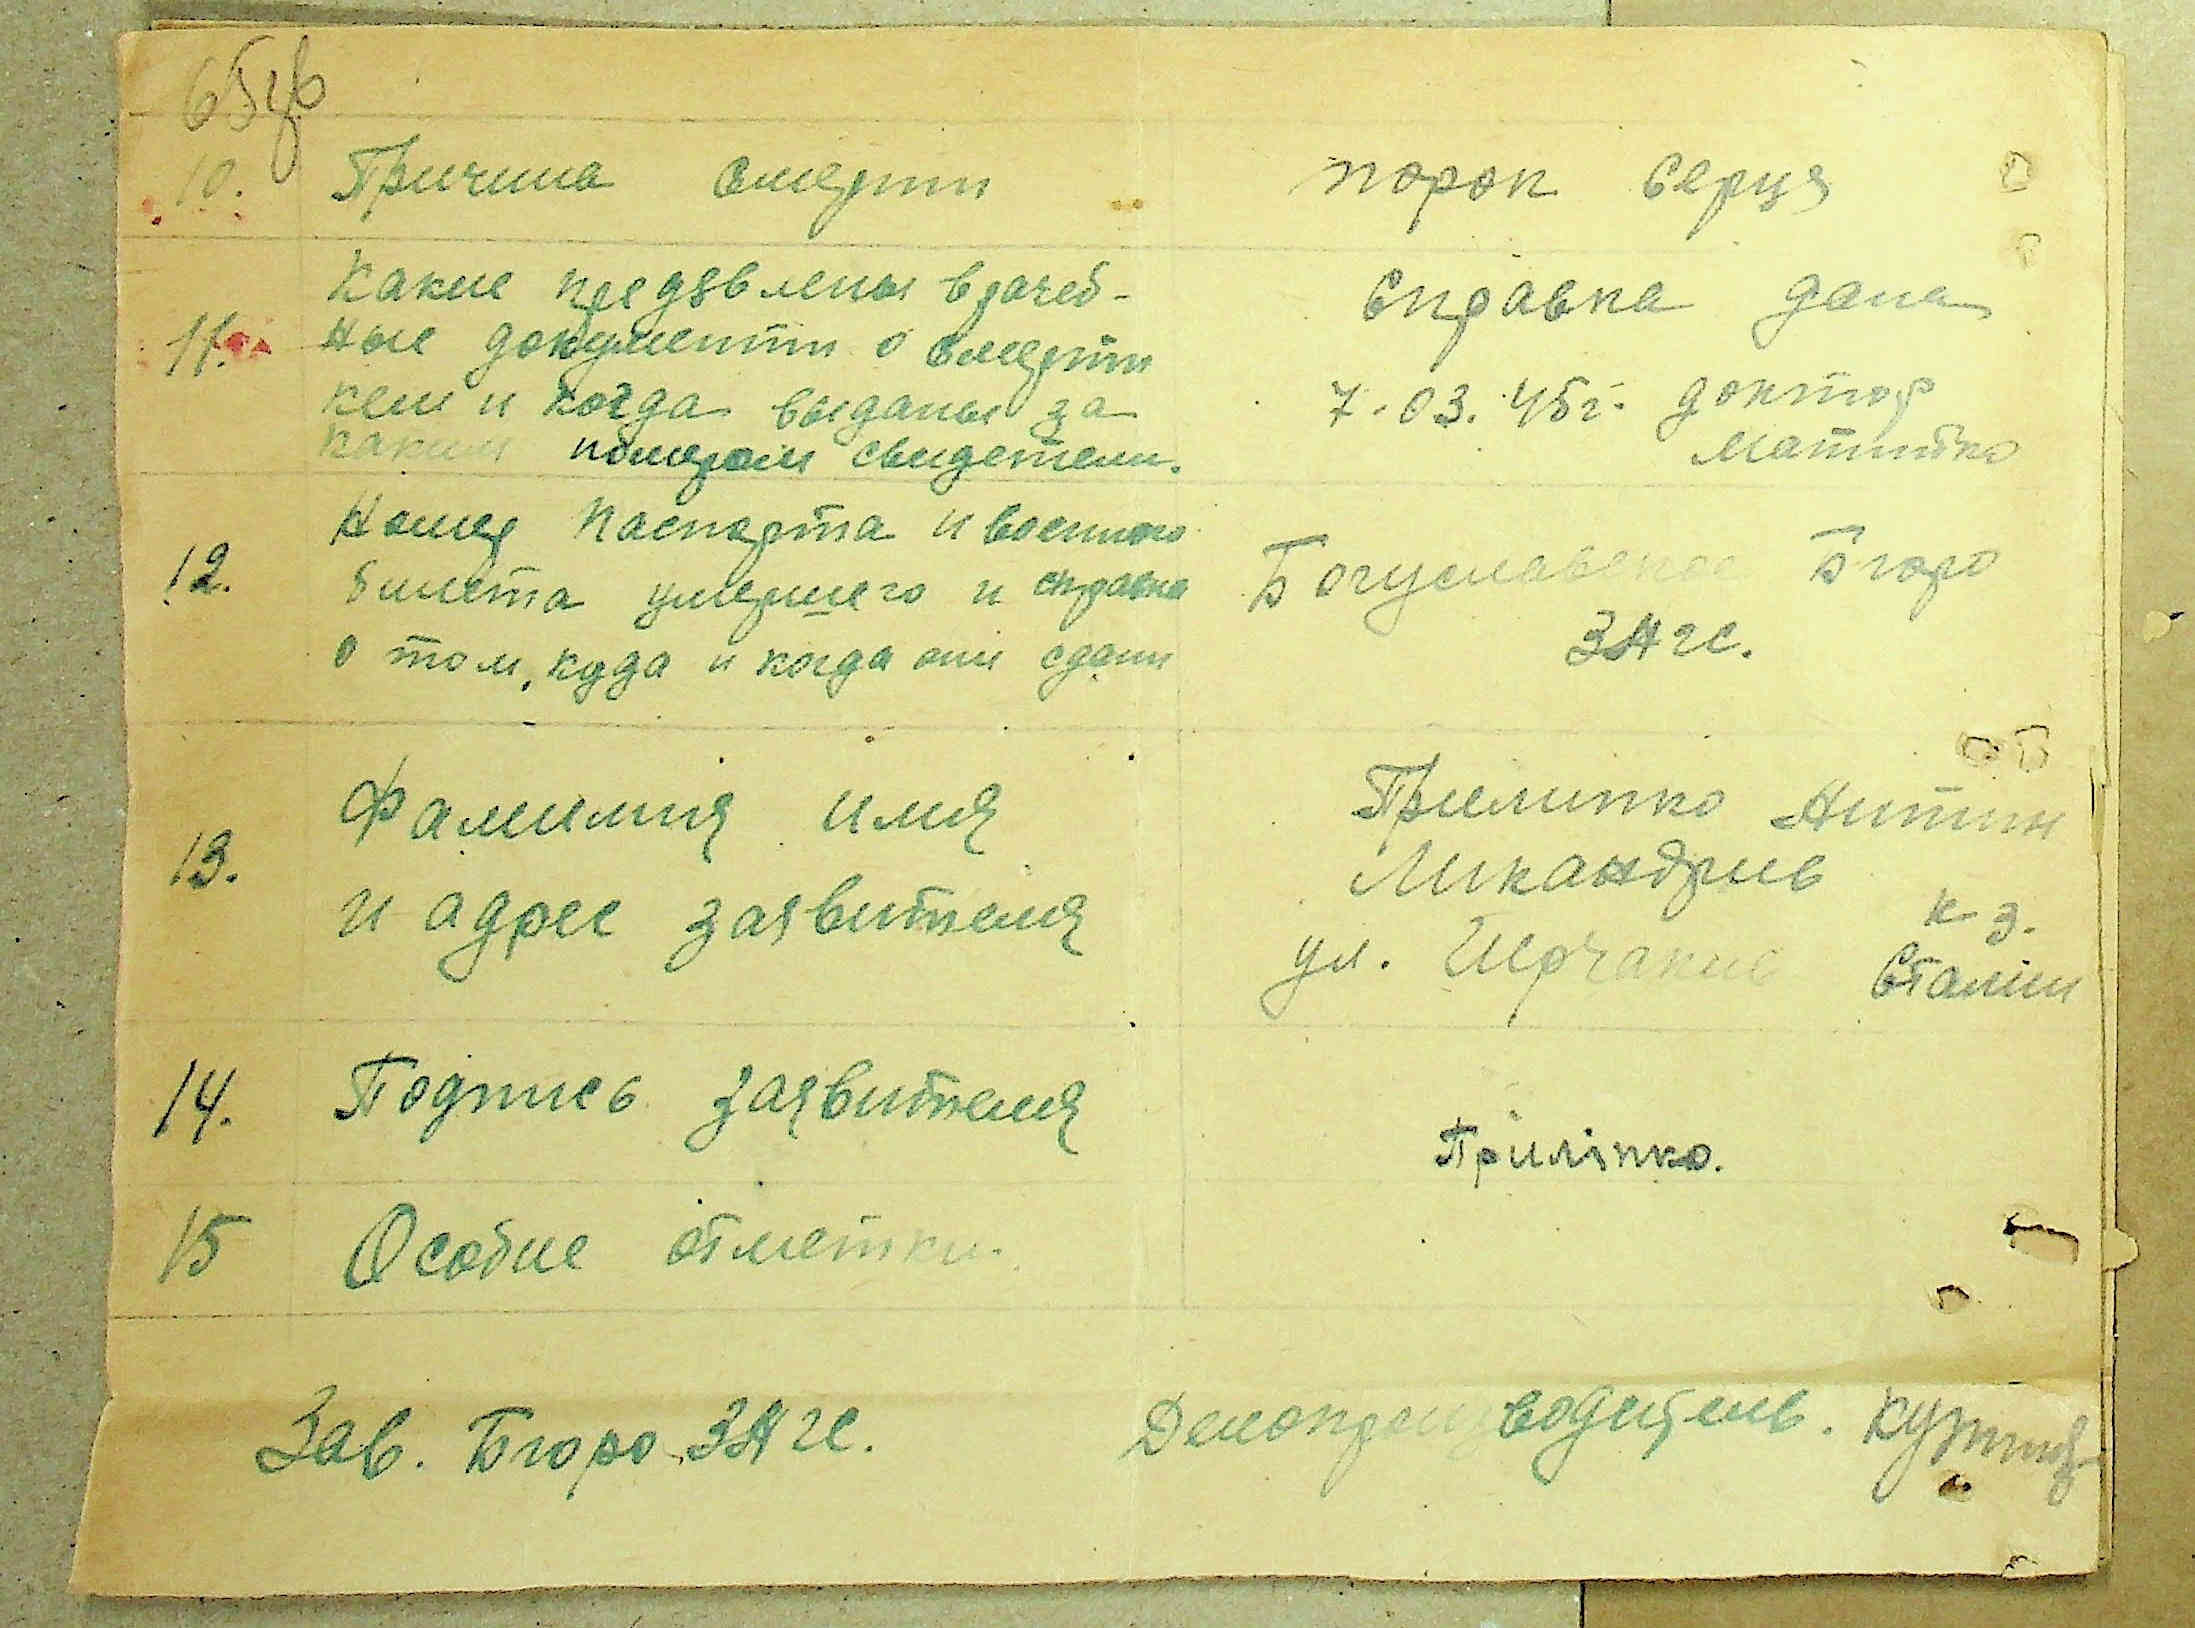 10. Причина смерти порок серця
Какие предявлены врачеб-
11. ные документи о смерти
кем и когда выданы за
каким номером свидетели.
Справка дана
7.03.45г. доктор
12. Номер паспорта и военного
билета умершего и справка
о том, куда и когда они сдани
Богуславское Бюро
ЗАГС.
13. Фамилия имя
и адрес заявителя
Прилипко Антин
ул. к з.
Сталин
14. Подпись заявителя
Приліпко.
15 Особие отметки.
Зав. Бюро ЗАГС. Делопроизводитель.